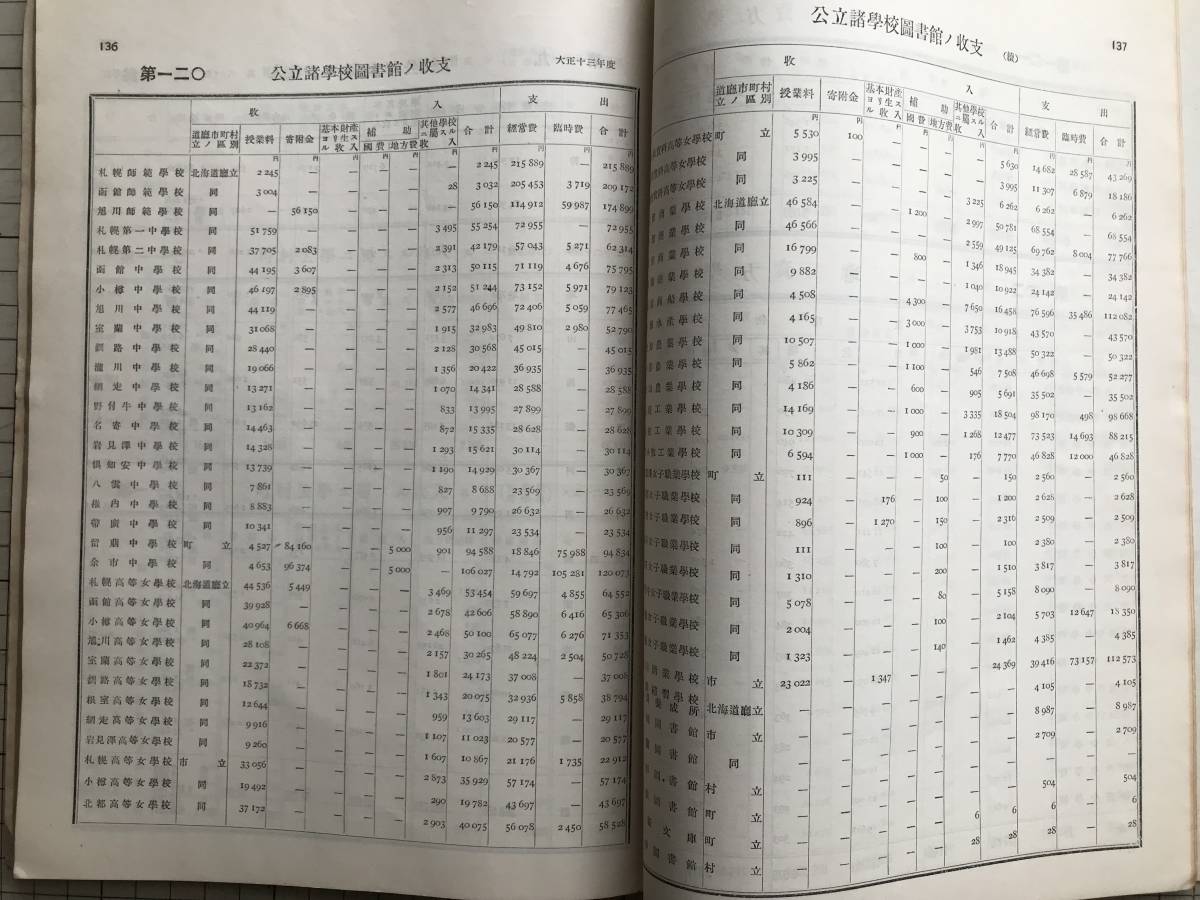 136
第一二〇 公立諸學校圖書館ノ收支 大正十三年度
收入 支出
道廳市町村立ノ區別 授業料 寄附金 基本財産ヨリ生スル收入 補助 國費 地方費 其他學校ニ屬スル收入 合計 經常費 臨時費 合計
円 円 円 円 円 円 円 円 円 円
札幌師範學校 北海道廳立 2 245 — — — — — 2 245 215 889 — 215 889
函館師範學校 同 3 004 — — — — 28 3 032 205 453 3 719 209 172
旭川師範學校 同 — 56 150 — — — — 56 150 114 912 59 987 174 899
札幌第一中學校 同 51 759 — — — — 3 495 55 254 72 955 — 72 955
札幌第二中學校 同 37 705 2 083 — — — 2 391 42 179 57 043 5 271 62 314
函館中學校 同 44 195 3 607 — — — 2 313 50 115 71 119 4 676 75 795
小樽中學校 同 46 197 2 895 — — — 2 152 51 244 73 152 5 971 79 123
旭川中學校 同 44 119 — — — — 2 577 46 696 72 406 5 059 77 465
室蘭中學校 同 31 068 — — — — 1 915 32 983 49 810 2 980 52 790
釧路中學校 同 28 440 — — — — 2 128 30 568 45 015 — 45 015
瀧川中學校 同 19 066 — — — — 1 356 20 422 36 935 — 36 935
網走中學校 同 13 271 — — — — 1 070 14 341 28 588 — 28 588
野付牛中學校 同 13 162 — — — — 833 13 995 27 899 — 27 899
名寄中學校 同 14 463 — — — — 872 15 335 28 628 — 28 628
岩見澤中學校 同 14 328 — — — — 1 293 15 621 30 114 — 30 114
倶知安中學校 同 13 739 — — — — 1 190 14 929 30 367 — 30 367
八雲中學校 同 7 861 — — — — 827 8 688 23 569 — 23 569
稚内中學校 同 8 883 — — — — 907 9 790 26 632 — 26 632
帶廣中學校 同 10 341 — — — — 956 11 297 23 534 — 23 534
留萠中學校 町立 4 527 84 160 — — 5 000 901 94 588 18 846 75 988 94 834
余市中學校 同 4 653 96 374 — — 5 000 — 106 027 14 792 105 281 120 073
札幌高等女學校 北海道廳立 44 536 5 449 — — — 3 469 53 454 59 697 4 855 64 552
函館高等女學校 同 39 928 — — — — 2 678 42 606 58 890 6 416 65 306
小樽高等女學校 同 40 964 6 668 — — — 2 468 50 100 65 077 6 276 71 353
旭川高等女學校 同 28 108 — — — — 2 157 30 265 48 224 2 504 50 728
室蘭高等女學校 同 22 372 — — — — 1 801 24 173 37 008 — 37 008
釧路高等女學校 同 18 732 — — — — 1 343 20 075 32 936 5 858 38 794
根室高等女學校 同 12 644 — — — — 959 13 603 29 117 — 29 117
網走高等女學校 同 9 916 — — — — 1 107 11 023 20 577 — 20 577
岩見澤高等女學校 同 9 260 — — — — 1 607 10 867 21 176 1 735 22 912
札幌高等女學校 市立 33 056 — — — — 2 873 35 929 57 174 — 57 174
小樽高等女學校 同 19 492 — — — — 290 19 782 43 697 — 43 697
高等女學校 同 37 172 — — — — 2 903 40 075 56 078 2 450 58 528
137
公立諸學校圖書館ノ收支 (續)
收入 支出
道廳市町村立ノ區別 授業料 寄附金 基本財産ヨリ生スル收入 補助 國費 地方費 其他學校ニ屬スル收入 合計 經常費 臨時費 合計
科高等女學校 町立 5 530 100 — — — — 5 630 14 682 28 587 43 269
科高等女學校 同 3 995 — — — — — 3 995 11 307 6 879 18 186
科高等女學校 同 3 225 — — — — — 3 225 6 262 — 6 262
商業學校 北海道廳立 46 584 — — 1 200 — 2 997 50 781 68 554 — 68 554
商業學校 同 46 566 — — — — 2 559 49 125 69 762 8 004 77 766
商業學校 同 16 799 — — 800 — 1 346 18 945 34 382 — 34 382
業學校 同 9 882 — — — — 1 040 10 922 24 142 — 24 142
商船學校 同 4 508 — — 4 300 — 7 650 16 458 76 596 35 486 112 082
水産學校 同 4 165 — — 3 000 — 3 753 10 918 43 570 — 43 570
農業學校 同 10 507 — — 1 000 — 1 981 13 488 50 322 — 50 322
農業學校 同 5 862 — — 1 100 — 546 7 508 46 698 5 579 52 277
農業學校 同 4 186 — — 600 — 905 5 691 35 502 — 35 502
工業學校 同 14 169 — — 1 000 — 3 335 18 504 98 170 498 98 668
工業學校 同 10 309 — — 900 — 1 268 12 477 73 523 14 693 88 215
工業學校 同 6 594 — — 1 000 — 176 7 770 46 828 12 000 46 828
女子職業學校 町立 111 — — — 50 — 150 2 560 — 2 560
女子職業學校 同 924 — 176 — 100 — 1 200 2 628 — 2 628
女子職業學校 同 896 — 1 270 — 150 — 2 316 2 509 — 2 509
女子職業學校 同 111 — — — 100 — 100 2 380 — 2 380
女子職業學校 同 1 310 — — — 200 — 1 510 3 817 — 3 817
女子職業學校 同 5 078 — — — 80 — 5 158 8 090 — 8 090
女子職業學校 同 2 004 — — — — — 2 104 5 703 12 647 18 350
女子職業學校 同 1 323 — — — 140 — 1 462 4 385 — 4 385
業學校 市立 23 022 — 1 347 — — — 24 369 39 416 73 157 112 573
成所 北海道廳立 — — — — — — — 4 105 — 4 105
圖書館 市立 — — — — — — — 8 987 — 8 987
圖書館 同 — — — — — — — 2 709 — 2 709
圖書館 村立 — — — — — — — 504 — 504
圖書館 町立 — — — — — 6 6 6 — 6
文庫 町立 — — — — — 28 28 28 — 28
圖書館 村立